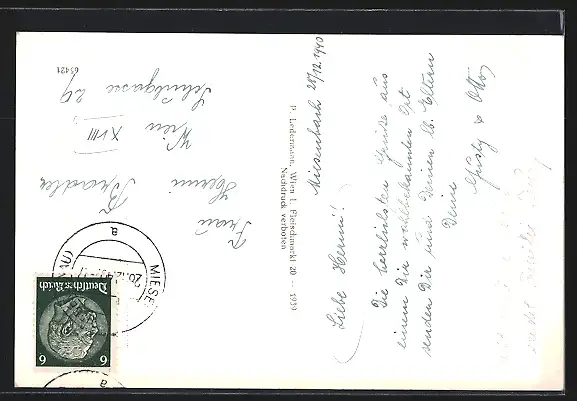 Miesenbach 28/12. 1940
Liebe Hermi!
Die herrlichsten Grüße aus
einem Dir wohlbekannten Ort
senden Dir und Deinen lb. Eltern
Deine
Gusty & Otto
P. Ledermann, Wien I, Fleischmarkt 20 — 1939
Nachdruck verboten
Frau
Hermi
Wien
XVIII
29
63421
MIESE
a
Deutsches Reich
6 6
a